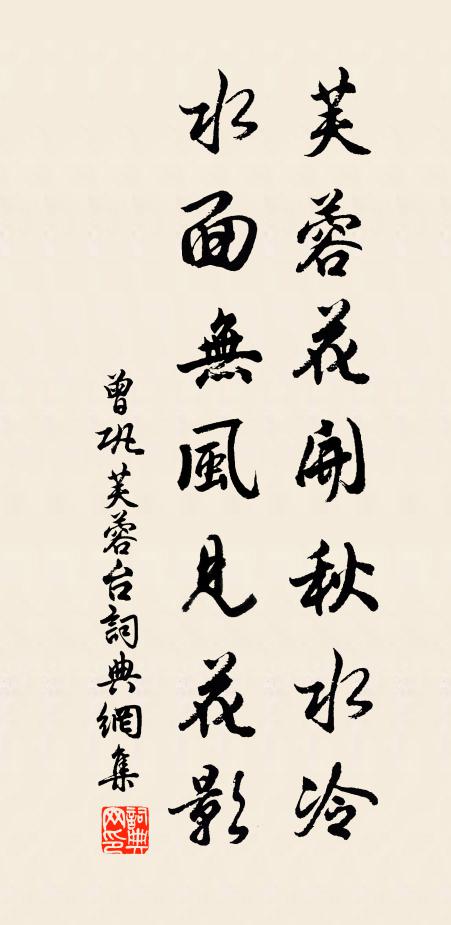 芙蓉花開秋水冷
水面無風見花影
曾巩芙蓉台詞典網集
詞典网印